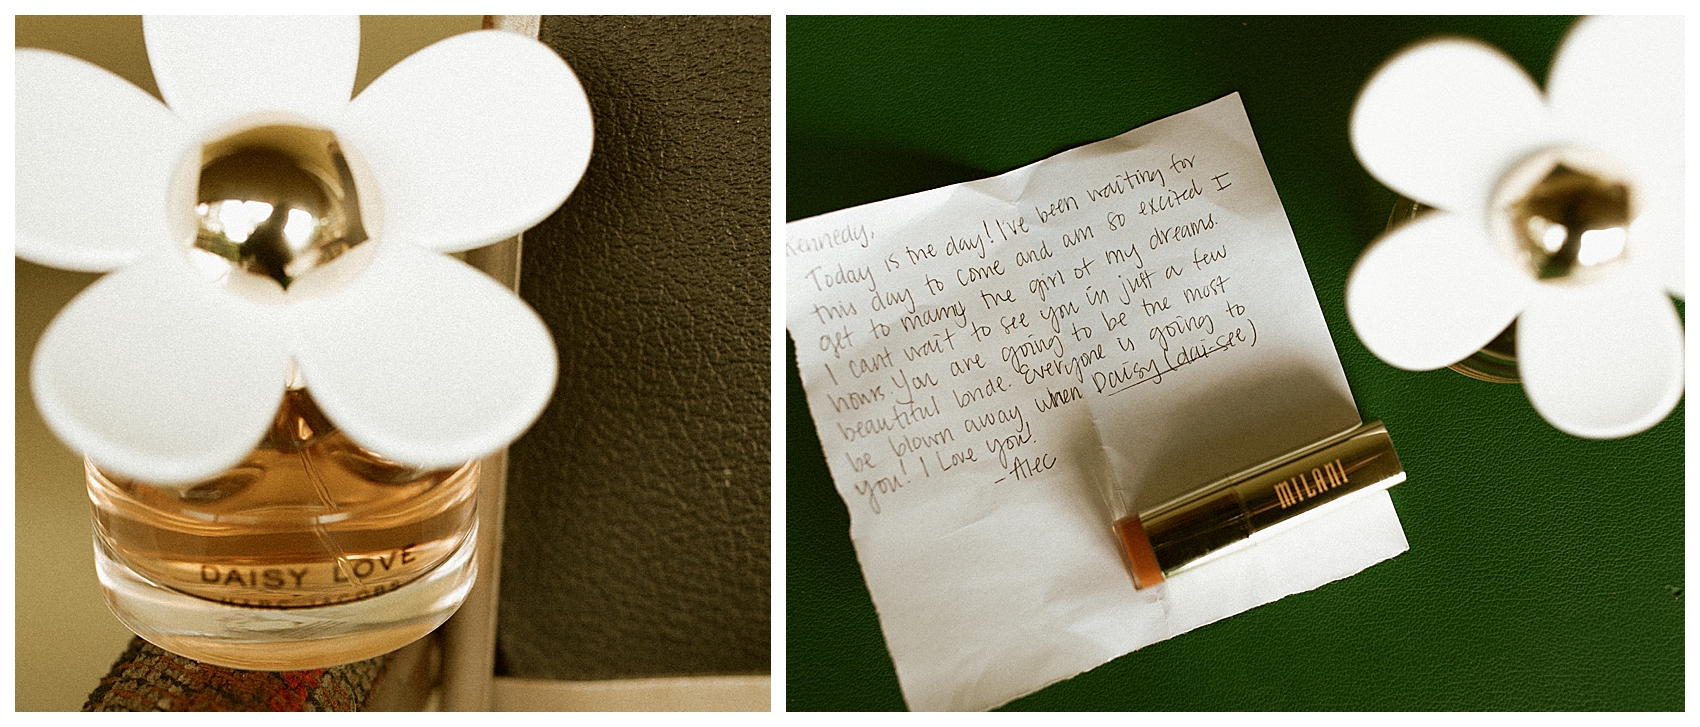 DAISY LOVE
MARC JACOBS
Kennedy,
Today is the day! I've been waiting for
this day to come and am so excited I
get to marry the girl of my dreams.
I cant wait to see you in just a few
hours. You are going to be the most
beautiful bride. Everyone is going to
be blown away when Daisy (dai-see)
you! I Love you!
-Alec
MILANI